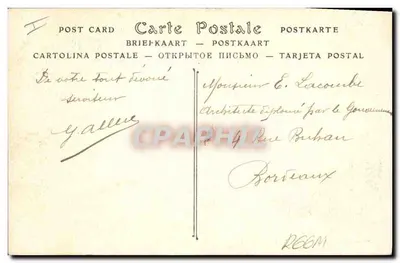 I
POST CARD Carte Postale POSTKARTE
BRIEFKAART — POSTKAART
CARTOLINA POSTALE — ОТКРЫТОЕ ПИСЬМО — TARJETA POSTAL
De votre tout dévoué
serviteur
Monsieur E. Lacombe
Architecte diplomé par le Gouvernement
4 rue Buhan
Bordeaux
CPARAMA